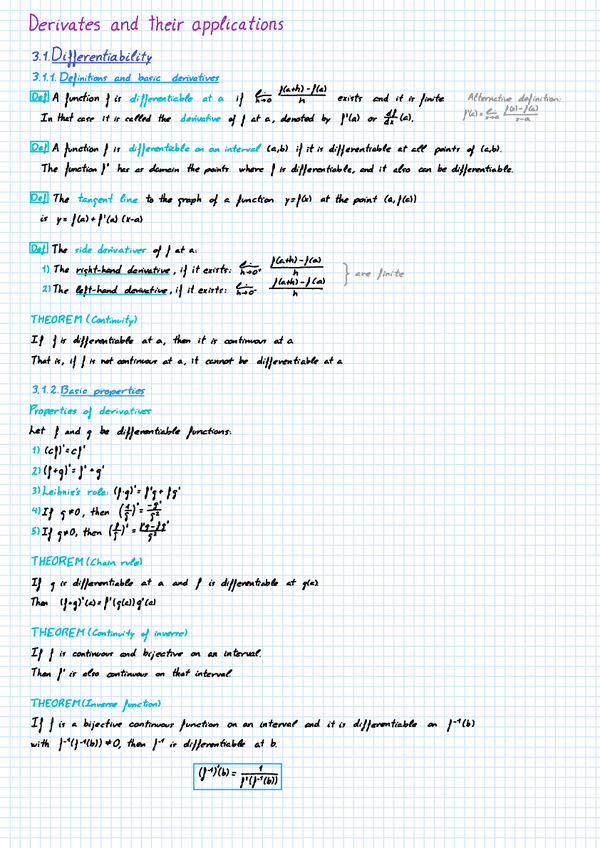 Derivates and their applications
3.1. Differentiability
3.1.1. Definitions and basic derivatives
Def A function f is differentiable at a if lim h→0 (f(a+h)-f(a))/h exists and it is finite
Alternative definition: f'(a) = lim x→a (f(x)-f(a))/(x-a)
In that case it is called the derivative of f at a, denoted by f'(a) or df/dx (a).
Def A function f is differentiable on an interval (a,b) if it is differentiable at all points of (a,b).
The function f' has as domain the points where f is differentiable, and it also can be differentiable.
Def The tangent line to the graph of a function y=f(x) at the point (a,f(a))
is y = f(a) + f'(a) (x-a)
Def The side derivatives of f at a:
1) The right-hand derivative, if it exists: lim h→0⁺ (f(a+h)-f(a))/h
2) The left-hand derivative, if it exists: lim h→0⁻ (f(a+h)-f(a))/h
} are finite
THEOREM (Continuity)
If f is differentiable at a, then it is continuous at a
That is, if f is not continuous at a, it cannot be differentiable at a
3.1.2. Basic properties
Properties of derivatives
Let f and g be differentiable functions:
1) (cf)' = cf'
2) (f+g)' = f' + g'
3) Leibniz's rule: (f·g)' = f'g + fg'
4) If g≠0, then (1/g)' = -g'/g²
5) If g≠0, then (f/g)' = (f'g-fg')/g²
THEOREM (Chain rule)
If g is differentiable at a and f is differentiable at g(a)
Then (f∘g)'(a) = f'(g(a)) g'(a)
THEOREM (Continuity of inverse)
If f is continuous and bijective on an interval.
Then f' is also continuous on that interval
THEOREM (Inverse function)
If f is a bijective continuous function on an interval and it is differentiable on f⁻¹(b)
with f⁻¹(f⁻¹(b)) ≠ 0, then f⁻¹ is differentiable at b.
(f⁻¹)'(b) = 1/f'(f⁻¹(b))